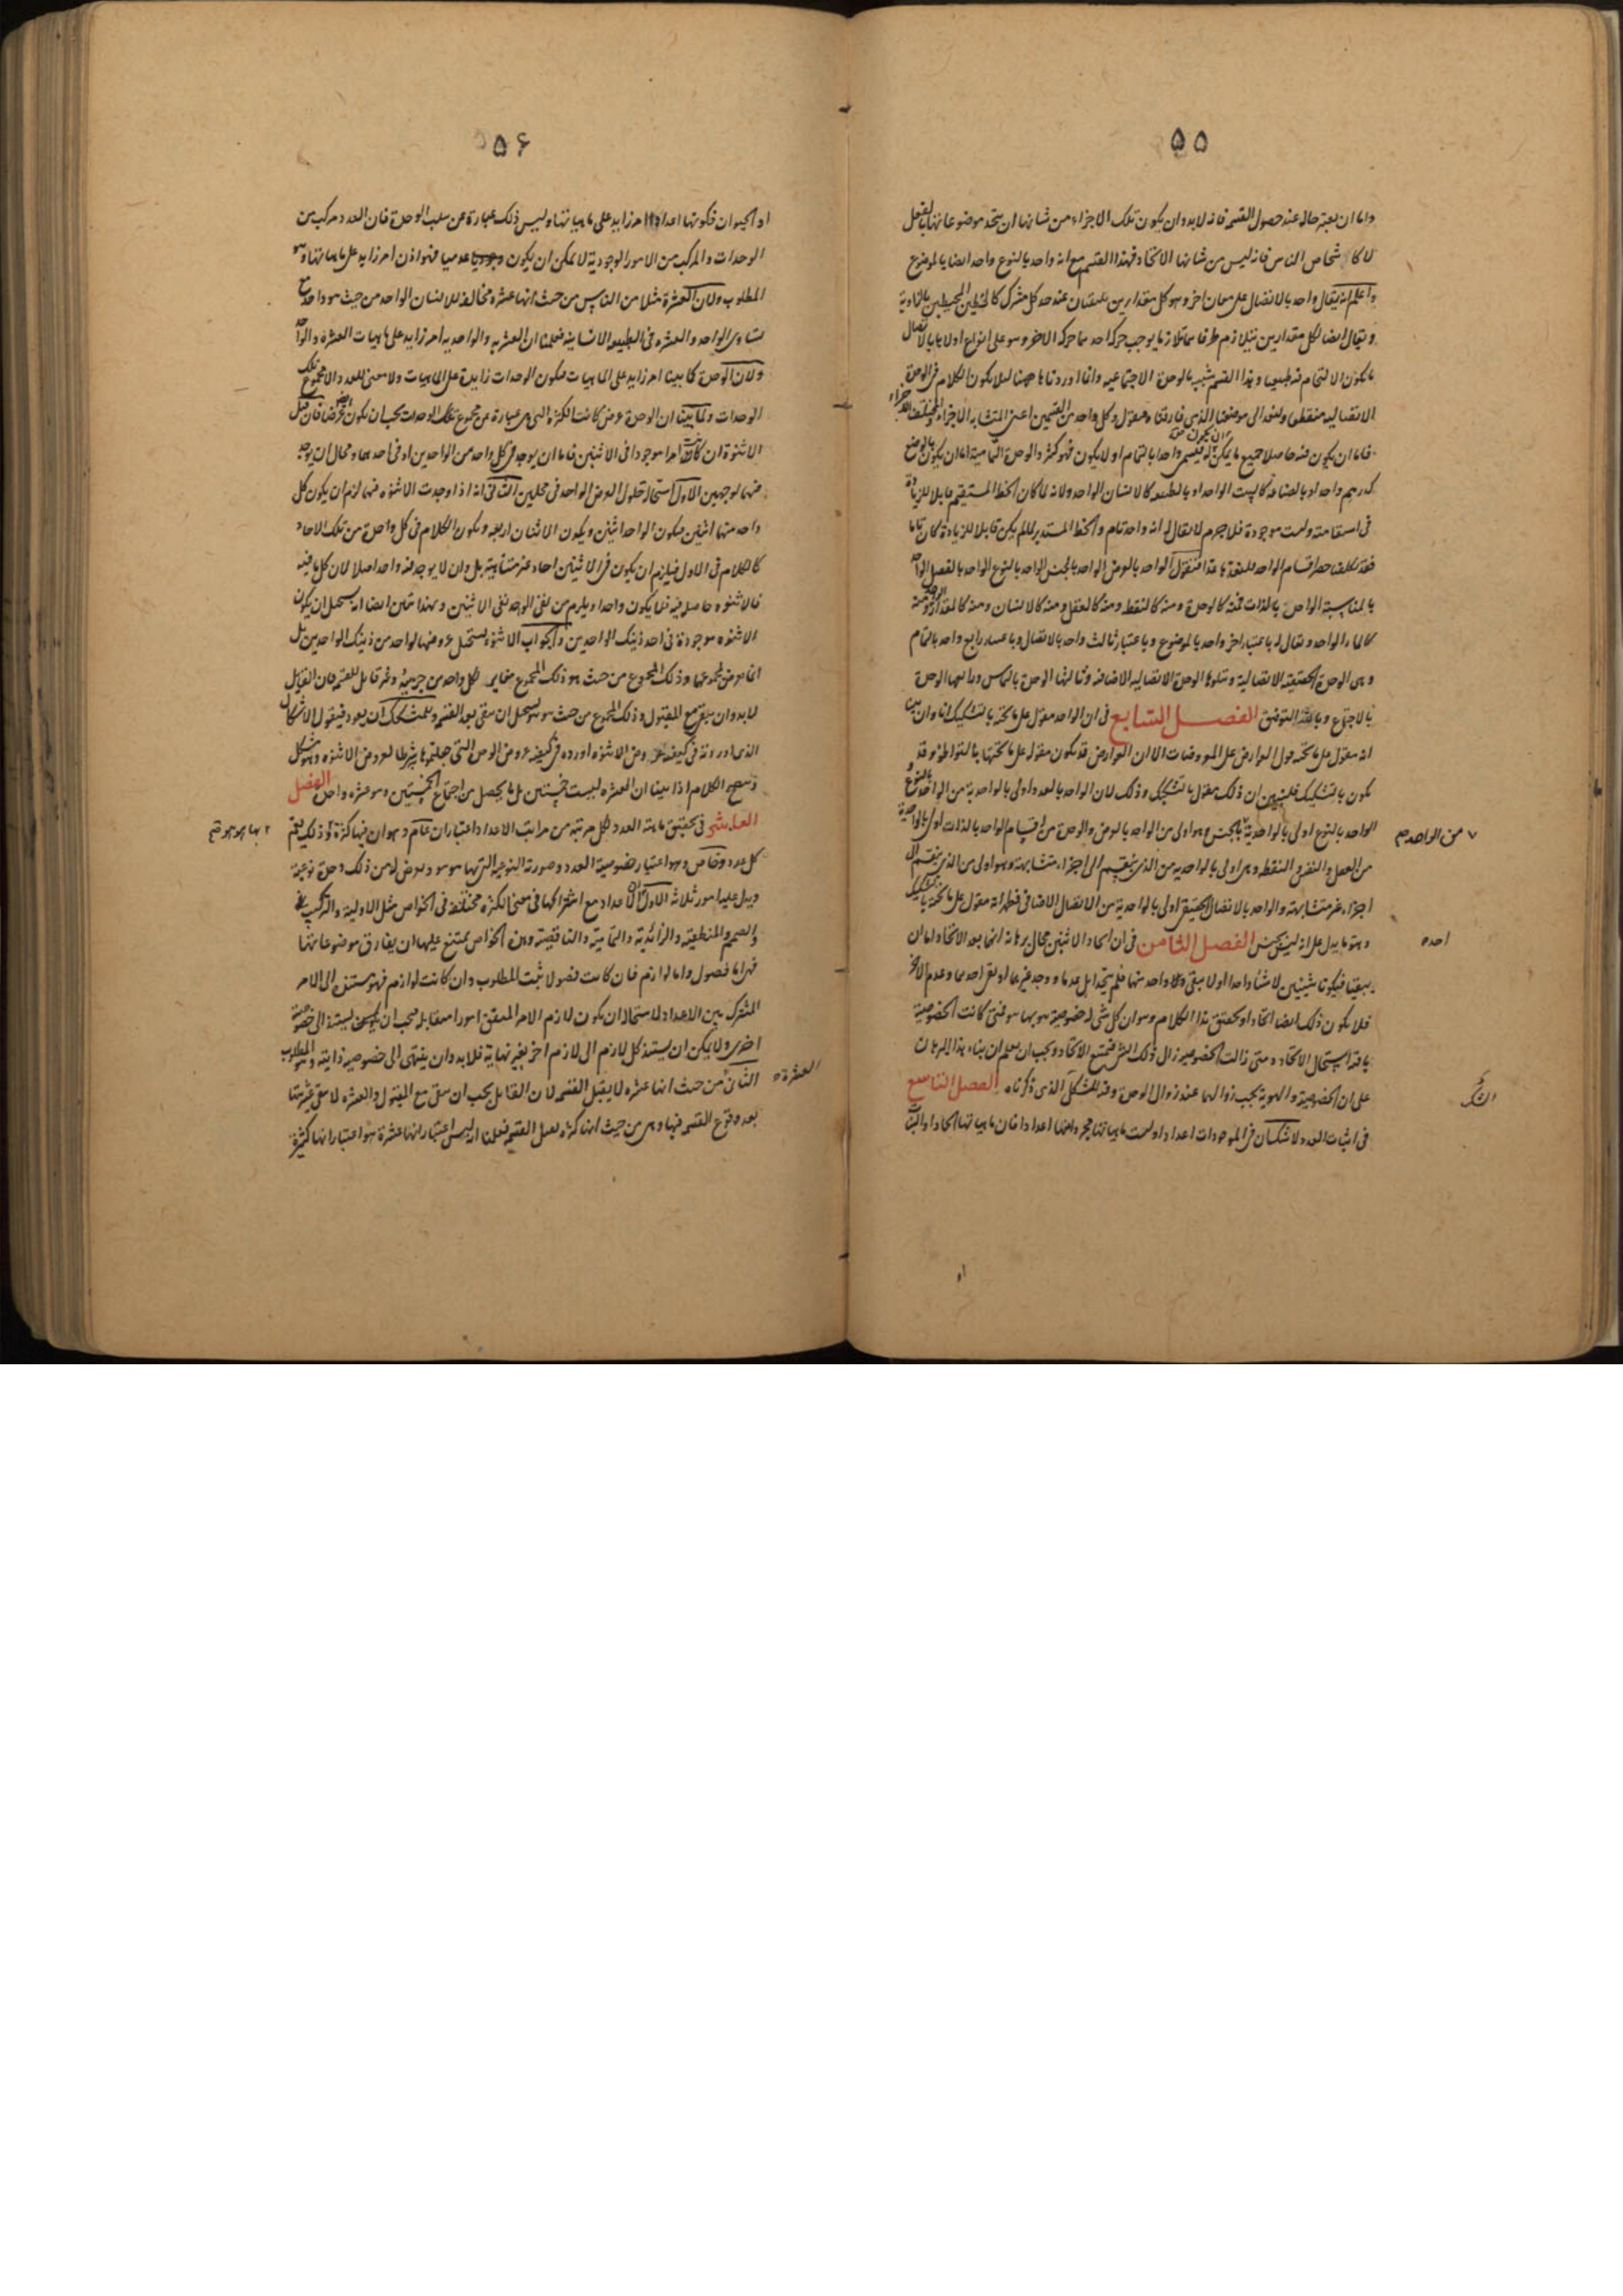 ۵۵
واما ان يعتبر حاله عند حصول القسمة فانه لابد وان يكون تلك الاجزاء من شانها ان يتحد موضوعاتها بالفعل
لا كاشخاص الناس فانه ليس من شانها الاتحاد فهذا القسم مع انه واحد بالنوع واحد ايضا بالموضوع
واعلم انه يقال واحد بالاتصال على معان اخر وهو كل مقدارين ملتقيان عند حد كل مشترك كالخطين المحيطين بالزاوية
ويقال ايضا لكل مقدارين يتلازم طرفاهما تلازما يوجب حركة احدهما حركة الاخر وهو على انواع اولاها بالاتصال
ما يكون الالتحام فيه طبيعيا وهذا القسم شبيه بالوحدة الاجتماعية وانما اوردناها ههنا ليلا يكون الكلام في الوحدة
الاتصالية منقطعا ولنعد الى موضعنا الذي فارقناه فنقول وكل واحد من القسمين اعني المتشابه الاجزاء والمختلف الاجزاء
فاما ان يكون فيه حاصلا جميع ما يمكن ان يكون له فيسمى واحدا بالتمام او لا يكون فهو كثير والوحدة التمامية اما ان يكون بالوضع
كدرهم واحد او بالصناعة كالبيت الواحد او بالطبيعة كالانسان الواحد ولانه لما كان الخط المستقيم قابلا للزيادة
في استقامته وليست موجودة فلا جرم لا يقال له انه واحد تام والخط المستدير لما لم يكن قابلا للزيادة كان تاما
فقد تكلفنا حصر اقسام الواحد فلنعدها عدا فنقول الواحد بالعرض الواحد بالجنس الواحد بالنوع الواحد بالفصل الواحد
بالمناسبة الواحد بالذات فمنه كالوحدة ومنه كالنقطة ومنه كالعقل ومنه كالانسان ومنه كالمقدار الواحد ومنه
كالماء الواحد ويقال له باعتبار اخر واحد بالموضوع وباعتبار ثالث واحد بالاتصال وباعتبار رابع واحد بالتمام
وهي الوحدة الحقيقية الاتصالية وتتلوها الوحدة الاتصالية الاضافية وثالثها الوحدة بالتماس ورابعها الوحدة
بالاجتماع وبالله التوفيق الفصل السابع في ان الواحد مقول على ما تحته بالتشكيك انا وان بينا
انه مقول على ما تحته قول العوارض على المعروضات الا ان العوارض قد يكون مقوله على ما تحتها بالتواطؤ وقد
يكون بالتشكيك فلنبين ان ذلك مقول بالتشكيك وذلك لان الواحد بالعدد اولى بالواحدية من الواحد بالنوع و
الواحد بالنوع اولى بالواحدية بالجنس وهو اولى من الواحد بالعرض والوحدة من اقسام الواحد بالذات اولى بالواحدية
من العقل والنفس والنقطة وهي اولى بالواحدية من الذي ينقسم الى اجزاء متشابهة وهو اولى من الذي ينقسم الى
اجزاء غير متشابهة والواحد بالاتصال الحقيقي اولى بالواحدية من الاتصال الاضافي فظهر انه مقول على ما تحته بالتشكيك
وهو ما يدل على انه ليس بجنس الفصل الثامن في ان اتحاد الاثنين محال برهانه انهما بعد الاتحاد اما ان
يبقيا فيكونا شيئين لا شيئا واحدا اولا يبقى ولا واحد منهما فلم يتحدا بل عدما ووجد غيرهما او بقي احدهما وعدم الاخر
فلا يكون ذلك ايضا اتحادا وتحقيق هذا الكلام وهو ان كل شي له خصوصية هو بها هو فمتى كانت الخصوصية
باقية استحال الاتحاد ومتى زالت الخصوصية زال ذلك الشي فيمتنع الاتحاد ويجب ان يعلم ان بناء هذا البرهان
على ان الخصوصية والهوية يجب زوالهما عند زوال الوحدة وفيه المشكل الذي ذكرناه الفصل التاسع
في اثبات العدد لا شك ان في الموجودات اعدادا وليست ماهياتها مجرد كونها اعدادا فان ماهياتها اتحادا والنبات
من الواحد م
احده
۵۶
او الحيوان فكونها اعدادا امر زايد على ماهياتها وليس ذلك عبارة عن سلب الوحدة فان العدد مركب من
الوحدات والمركب من الامور الوجودية لا يمكن ان يكون عدميا فهو اذن امر زايد على ماهياتها وهو
المطلوب ولان العشرة مثلا من الناس من حيث انها عشرة مخالفة للانسان الواحد من حيث هو واحد مع
تساوي الواحد والعشرة في الطبيعة الانسانية فعلمنا ان العشرية والواحدية امر زايد على ماهيات العشرة والواحد
ولان الوحدة كما بينا امر زايد على الماهيات فيكون الوحدات زايدة على الماهيات ولا معنى للعدد الا مجموع تلك
الوحدات ولما بينا ان الوحدة عرض كانت الكثرة التي هي عبارة عن مجموع تلك الوحدات يجب ان يكون ايضا عرضا فان قيل
الاثنوة ان كانت امرا موجودا في الاثنين فاما ان يوجد في كل واحد من الواحدين او في احدهما ومحال ان يوجد
فيهما لوجهين الاول استحالة حلول العرض الواحد في محلين الثاني انه اذا وجدت الاثنوة فيهما لزم ان يكون كل
واحد منهما اثنين فيكون الواحد اثنين ويكون الاثنان اربعة ويكون الكلام في كل واحدة من تلك الاحاد
كالكلام في الاول فيلزم ان يكون في الاثنين احاد غير متناهية بل وان لا يوجد فيه واحد اصلا لان كل ما فيه
فالاثنوة حاصلة فيه فلا يكون واحدا ويلزم من نفي الوحدة نفي الاثنين وبهذا تبين ايضا انه يستحيل ان يكون
الاثنوة موجودة في احد ذينك الواحدين والجواب الاثنوة يستحيل عروضها لواحد من ذينك الواحدين بل
انما يعرض لمجموعهما وذلك المجموع من حيث هو ذلك المجموع مغاير لكل واحد من جزييه وغير قابل للقسمة فان القابل
لابد وان يبقى مع المقبول وذلك المجموع من حيث هو هو يستحيل ان يبقى بعد القسمة وللمتشكك ان يعود فيقول الاشكال
الذي اوردته في كيفية عروض الاثنوة اورده في كيفية عروض الوحدة التي جعلتموها شرطا لعروض الاثنوة وهو مشكل
وسيجي الكلام اذا بينا ان العشرة ليست خمستين بل ما يحصل من اجتماع الخمستين وهو عشرة واحدة الفصل
العاشر في تحقيق ماهية العدد لكل مرتبة من مراتب الاعداد اعتباران عام وهو ان فيها كثرة وذلك يعم
كل عدد وخاص وهو اعتبار خصوصية العدد وصورته النوعية التي بها هو هو ويعرض له من ذلك وحدة نوعية
ويدل عليها امور ثلاثة الاول ان الاعداد مع اشتراكها في معنى الكثرة مختلفة في الخواص مثل الاولية والتركيب
والصمم والمنطقية والزائدية والتمامية والناقصة وهذه الخواص يمتنع عليها ان يفارق موضوعاتها
فهي اما فصول واما لوازم فان كانت فصولا ثبت المطلوب وان كانت لوازم فهو يستند الى الامر
المشترك بين الاعداد لاستحالة ان يكون لازم الامر المتفق امورا متقابلة فيجب ان يستند الى خصوصية
اخرى ولا يمكن ان يستند كل لازم الى لازم اخر بغير نهاية فلا بد وان ينتهي الى خصوصية ذاتية وهو المطلوب
الثاني من حيث انها عشرة لا يقبل القسمة لان القابل يجب ان يبقى مع المقبول والعشرة لا يبقى عشريتها
بعد وقوع القسمة فيها وهي من حيث انها كثرة يقبل القسمة فعلمنا انه ليس اعتبار انها عشرة هو اعتبار انها كثرة
العشرة